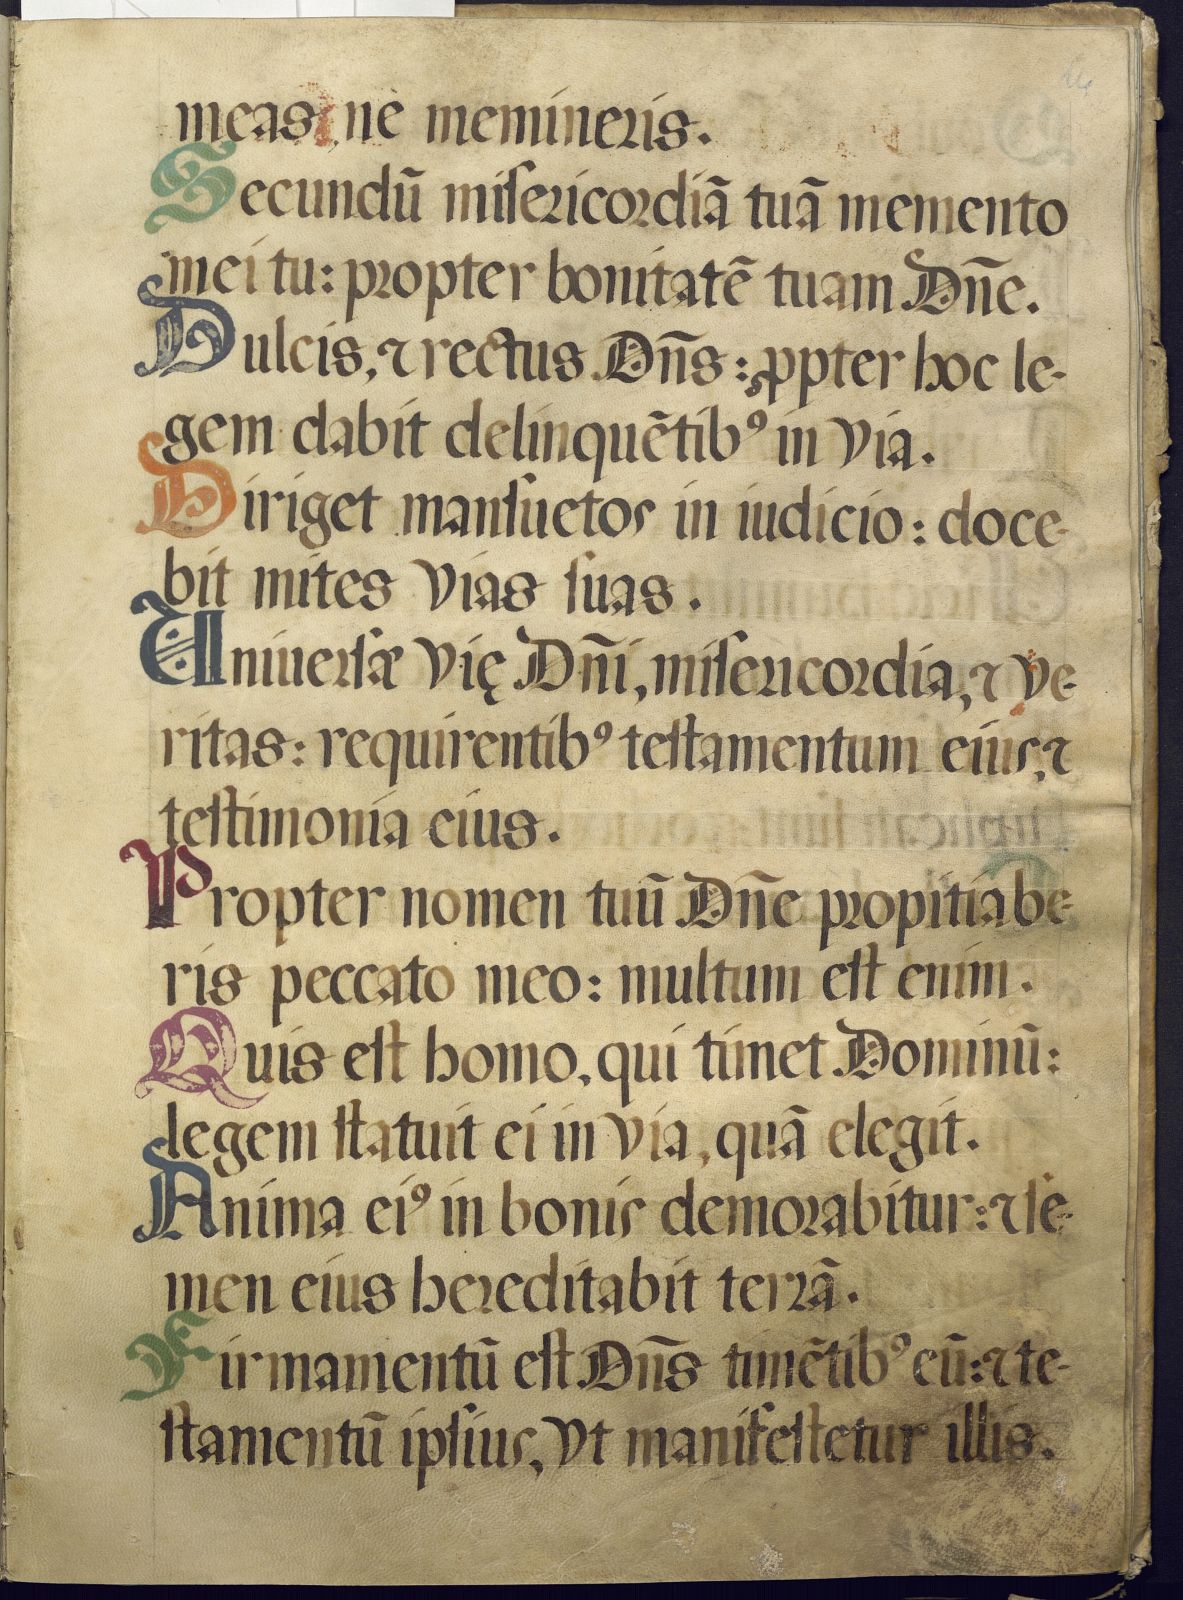 meas ne memineris.
Secundū miſericordiā tuā memento
mei tu: propter bonitatē tuam Dn̄e.
Dulcis, ⁊ rectus Dn̄s: ꝓpter hoc le-
gem dabit delinquētibꝰ in via.
Diriget manſuetos in iudicio: doce-
bit mites vias ſuas.
Uniuerſæ vię Dn̄i, miſericordia, ⁊ ve-
ritas: requirentibꝰ teſtamentum eius, ⁊
teſtimonia eius.
Propter nomen tuū Dn̄e propitiabe-
ris peccato meo: multum eſt enim.
Quis eſt homo, qui timet Dominū:
legem ſtatuit ei in via, quā elegit.
Anima eiꝰ in bonis demorabitur: ⁊ ſe-
men eius hereditabit terrā.
Firmamentū eſt Dn̄s timētibꝰ eū: ⁊ te-
ſtamentū ipſius, vt manifeſtetur illis.